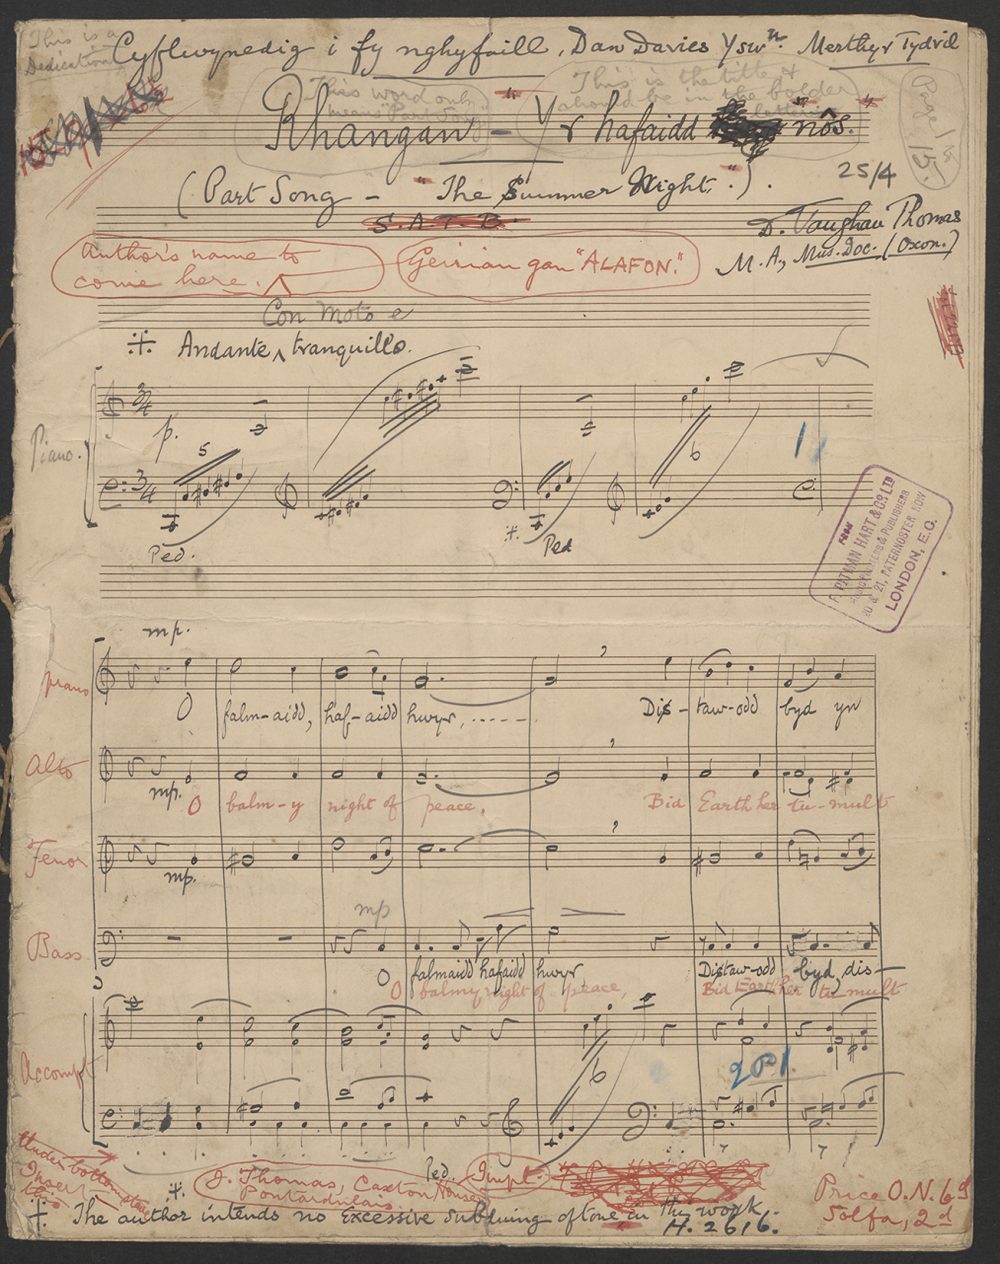 This is a
Dedication
Cyflwynedig i fy nghyfaill, Dan Davies Yswn. Merthyr Tydvil
This word only
means "Part Song"
This is the title &
should be in the bolder
lettering
Page 1 is
15.
Rhangan - "Yr hafaidd nôs."
25/4
(Part Song - "The Summer Night.").
S.A.T.B.
D. Vaughan Thomas
M.A., Mus. Doc. (Oxon.)
Author's name to
come here.
Geiriau gan "ALAFON."
Con moto e
Andante tranquillo.
Piano.
3/4
p.
5
6
3/4
Ped.
Ped
FROM
F. PITMAN HART & Co LTD
& PUBLISHERS
20 & 21, PATERNOSTER ROW
LONDON, E.C.
mp.
O falm-aidd, haf-aidd hwyr, ...... Dis-taw-odd byd yn
Alto
mp.
O balm-y night of peace, Bid Earth her tu-mult
Tenor
mp.
mp
Bass
O falmaidd hafaidd hwyr Distaw-odd byd, dis-
O balmy night of peace, Bid Earth her tu-mult
Accompt
6
2 P1.
Ped.
Under bottom stave
Insert
J. Thomas, Caxton House
Pontardulais
Impt.
Price O.N. 6d
Solfa, 2d
The author intends no excessive subduing of tone in this work.
H. 2616.